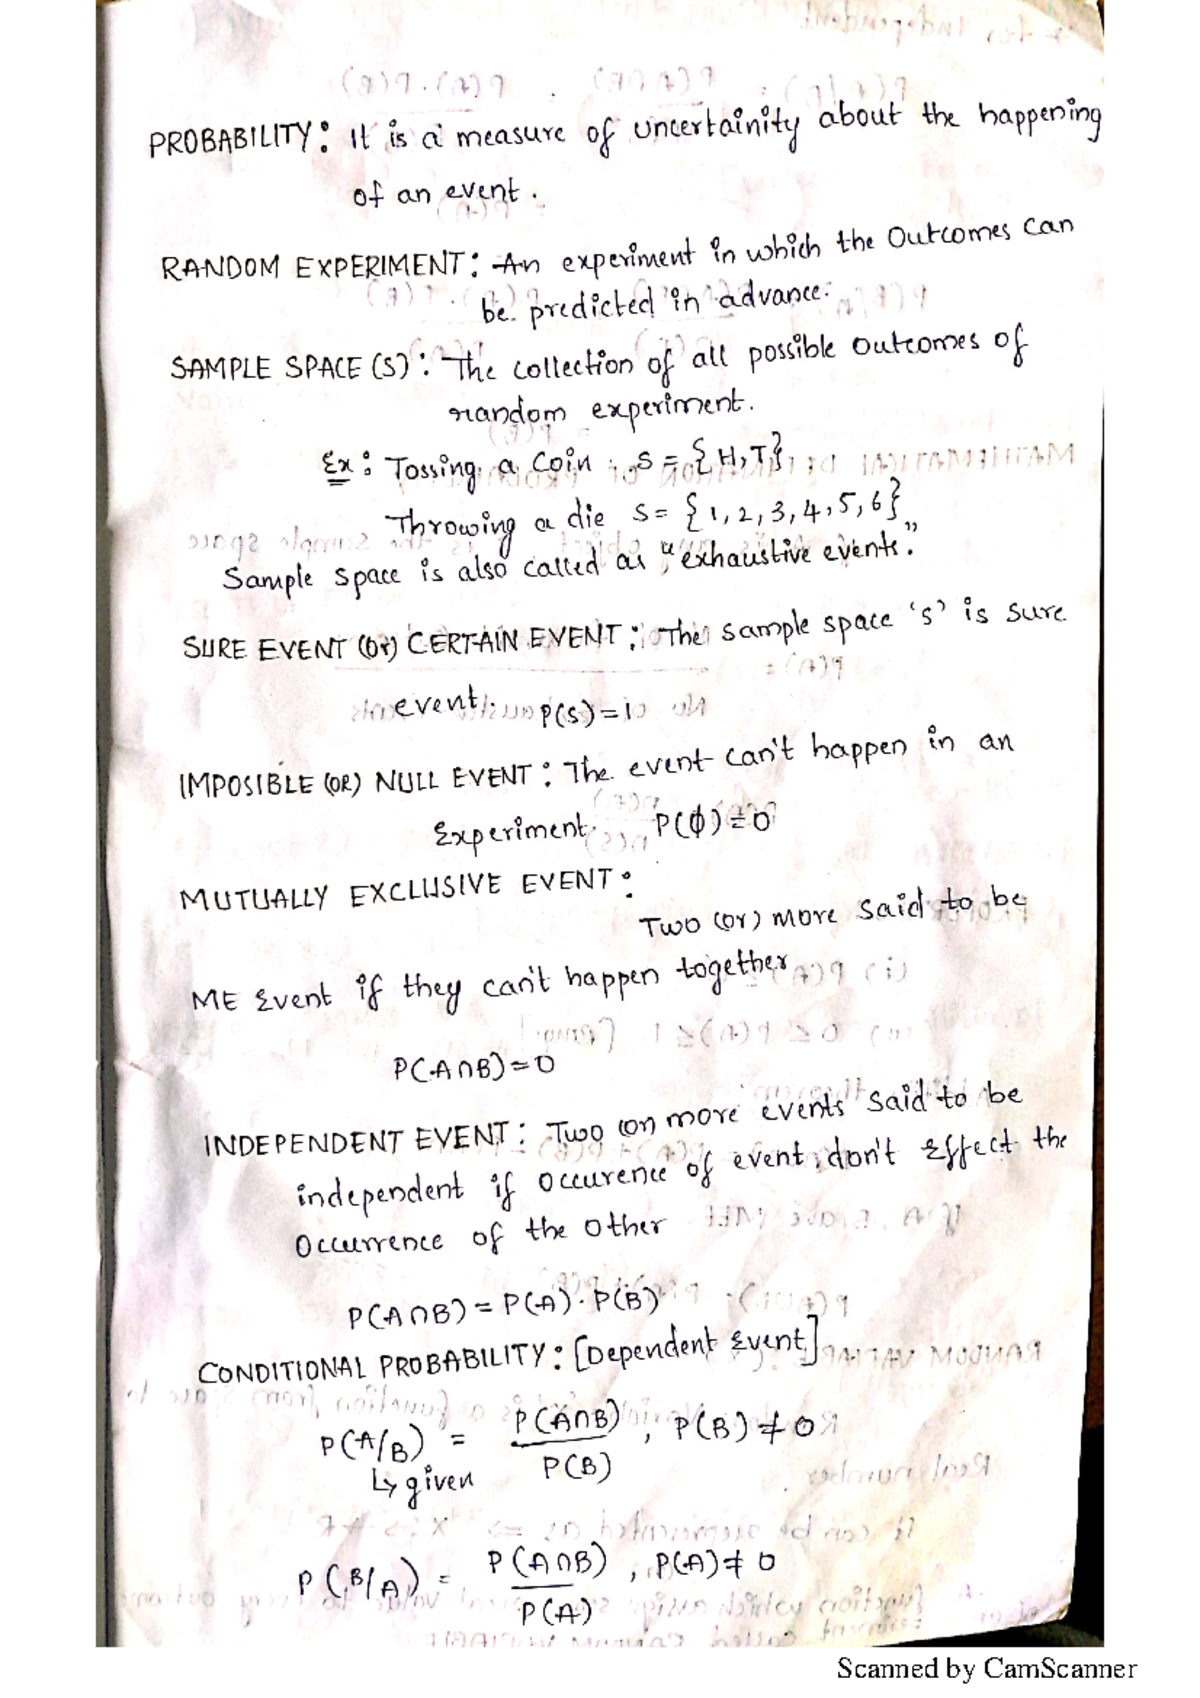 PROBABILITY: It is a measure of uncertainity about the happening
of an event.
RANDOM EXPERIMENT: An experiment in which the Outcomes can
be predicted in advance.
SAMPLE SPACE (S): The collection of all possible outcomes of
random experiment.
Ex: Tossing a coin. S = {H,T}
Throwing a die S = {1,2,3,4,5,6}
Sample space is also called as "exhaustive events."
SURE EVENT (or) CERTAIN EVENT: The sample space 's' is sure
event. P(S)=1
IMPOSIBLE (OR) NULL EVENT: The event can't happen in an
Experiment. P(ϕ)=0
MUTUALLY EXCLUSIVE EVENT:
Two (or) more said to be
ME Event if they can't happen together
P(A∩B)=0
INDEPENDENT EVENT: Two (or) more events said to be
independent if occurence of event don't effect the
Occurrence of the other
P(A∩B) = P(A)·P(B)
CONDITIONAL PROBABILITY: [Dependent Event]
P(A/B) = P(A∩B)/P(B), P(B) ≠ 0
↳ given
P(B/A) = P(A∩B)/P(A), P(A) ≠ 0
Scanned by CamScanner